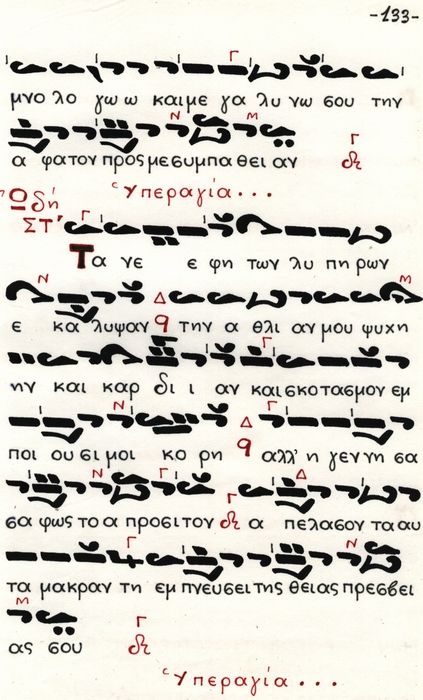 -133-
Γ
μνο λο γω ω και με γα λυ νω σου την
Ν Μ
α φατον προς με συμπα θει αν
Γ
Ὑπεραγία...
Ωδή
ΣΤ' Γ
Τα νε ε φη των λυ πη ρων
Ν Δ Μ
ε κα λυψαν την α θλι αν μου ψυχη
Γ
ην και καρ δι ι αν και σκοτασμον εμ
Ν Δ Γ
ποι ου σι μοι κο ρη αλλ' η γεννη σα
Ν Γ Γ Δ
σα φως το α προσιτον α πελασον τα αυ
Γ Ν
τα μακραν τη εμ πνευσει της θειας πρεσβει
Μ
ας σου
Γ
Ὑπεραγία...